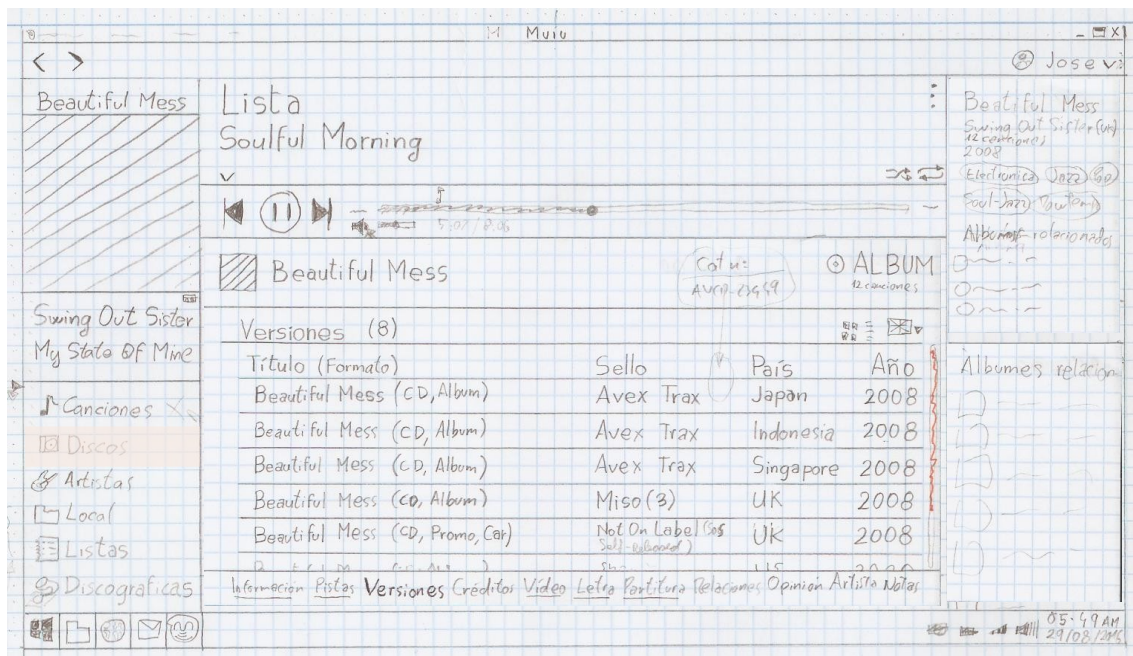 Muiu
Jose
Beautiful Mess
Swing Out Sister
My State Of Mine
Canciones
Discos
Artistas
Local
Listas
Discograficas
Lista
Soulful Morning
5:07 / 6:06
Beautiful Mess
Cat nº:
ALBUM
12 canciones
Versiones (8)
Título (Formato) Sello País Año
Beautiful Mess (CD, Album) Avex Trax Japan 2008
Beautiful Mess (CD, Album) Avex Trax Indonesia 2008
Beautiful Mess (CD, Album) Avex Trax Singapore 2008
Beautiful Mess (CD, Album) Miso (3) UK 2008
Beautiful Mess (CD, Promo, Car) Not On Label (SOS UK 2008
Self-Released)
Informacion Pistas Versiones Créditos Vídeo Letra Partitura Relaciones Opinion Artista Notas
Beatiful Mess
Swing Out Sister (UK)
12 canciones
2008
Electronica Jazz
Soul-Jazz Downtempo
relacionados
Albumes relacion
05:49 AM
29/08/2015